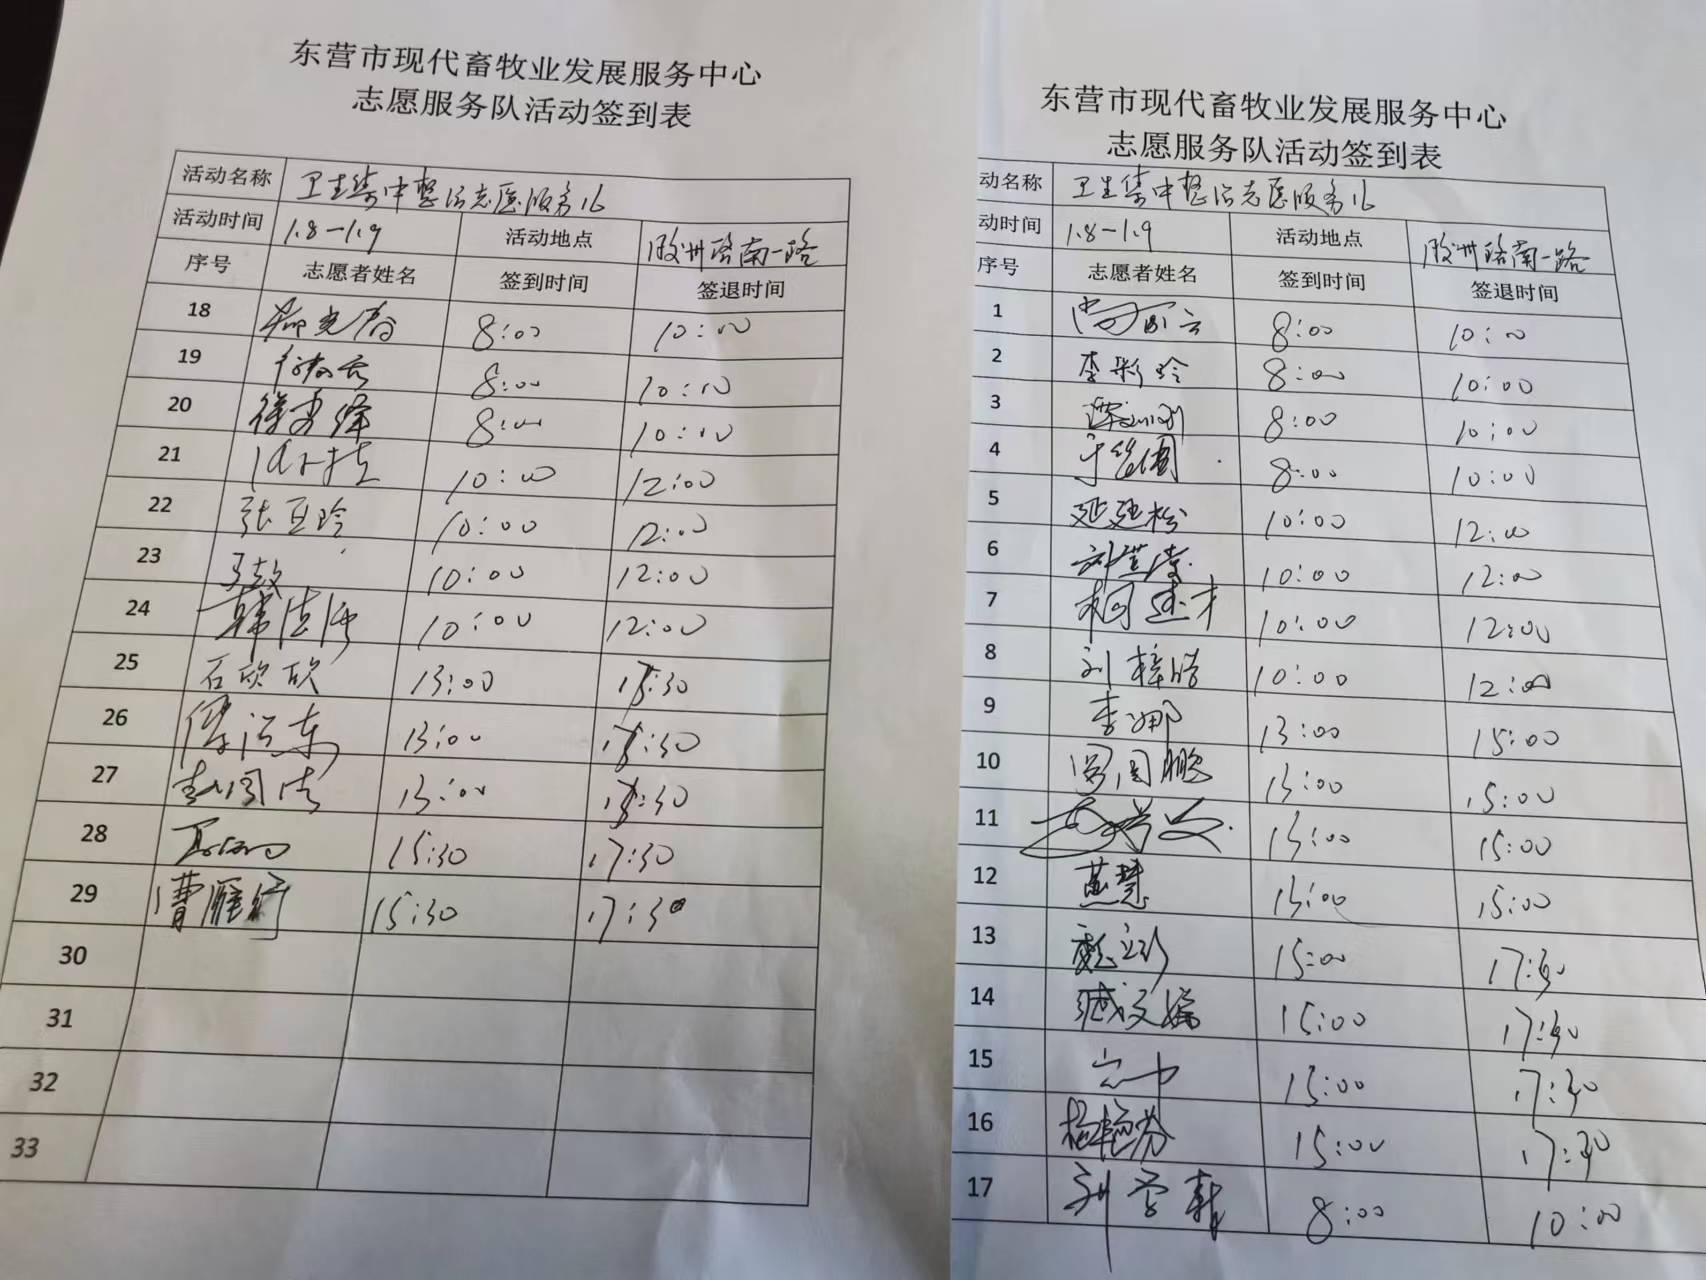 东营市现代畜牧业发展服务中心
志愿服务队活动签到表
活动名称 卫生集中整治志愿服务
活动时间 1.8-1.9 活动地点 胶州路南一路
序号 志愿者姓名 签到时间 签退时间
18 8:00 10:00
19 8:00 10:00
20 8:00 10:00
21 10:00 12:00
22 张亚玲 10:00 12:00
23 10:00 12:00
24 10:00 12:00
25 石欣欣 13:00 15:30
26 13:00 15:30
27 13:00 15:30
28 15:30 17:30
29 曹雁行 15:30 17:30
30
31
32
33
东营市现代畜牧业发展服务中心
志愿服务队活动签到表
动名称 卫生集中整治志愿服务
动时间 1.8-1.9 活动地点 胶州路南一路
序号 志愿者姓名 签到时间 签退时间
1 8:00 10:00
2 李彩玲 8:00 10:00
3 8:00 10:00
4 8:00 10:00
5 延建松 10:00 12:00
6 10:00 12:00
7 10:00 12:00
8 刘梓皓 10:00 12:00
9 李娜 13:00 15:00
10 13:00 15:00
11 13:00 15:00
12 13:00 15:00
13 15:00 17:30
14 臧文嬌 15:00 17:30
15 15:00 17:30
16 杨艳芬 15:00 17:30
17 8:00 10:00